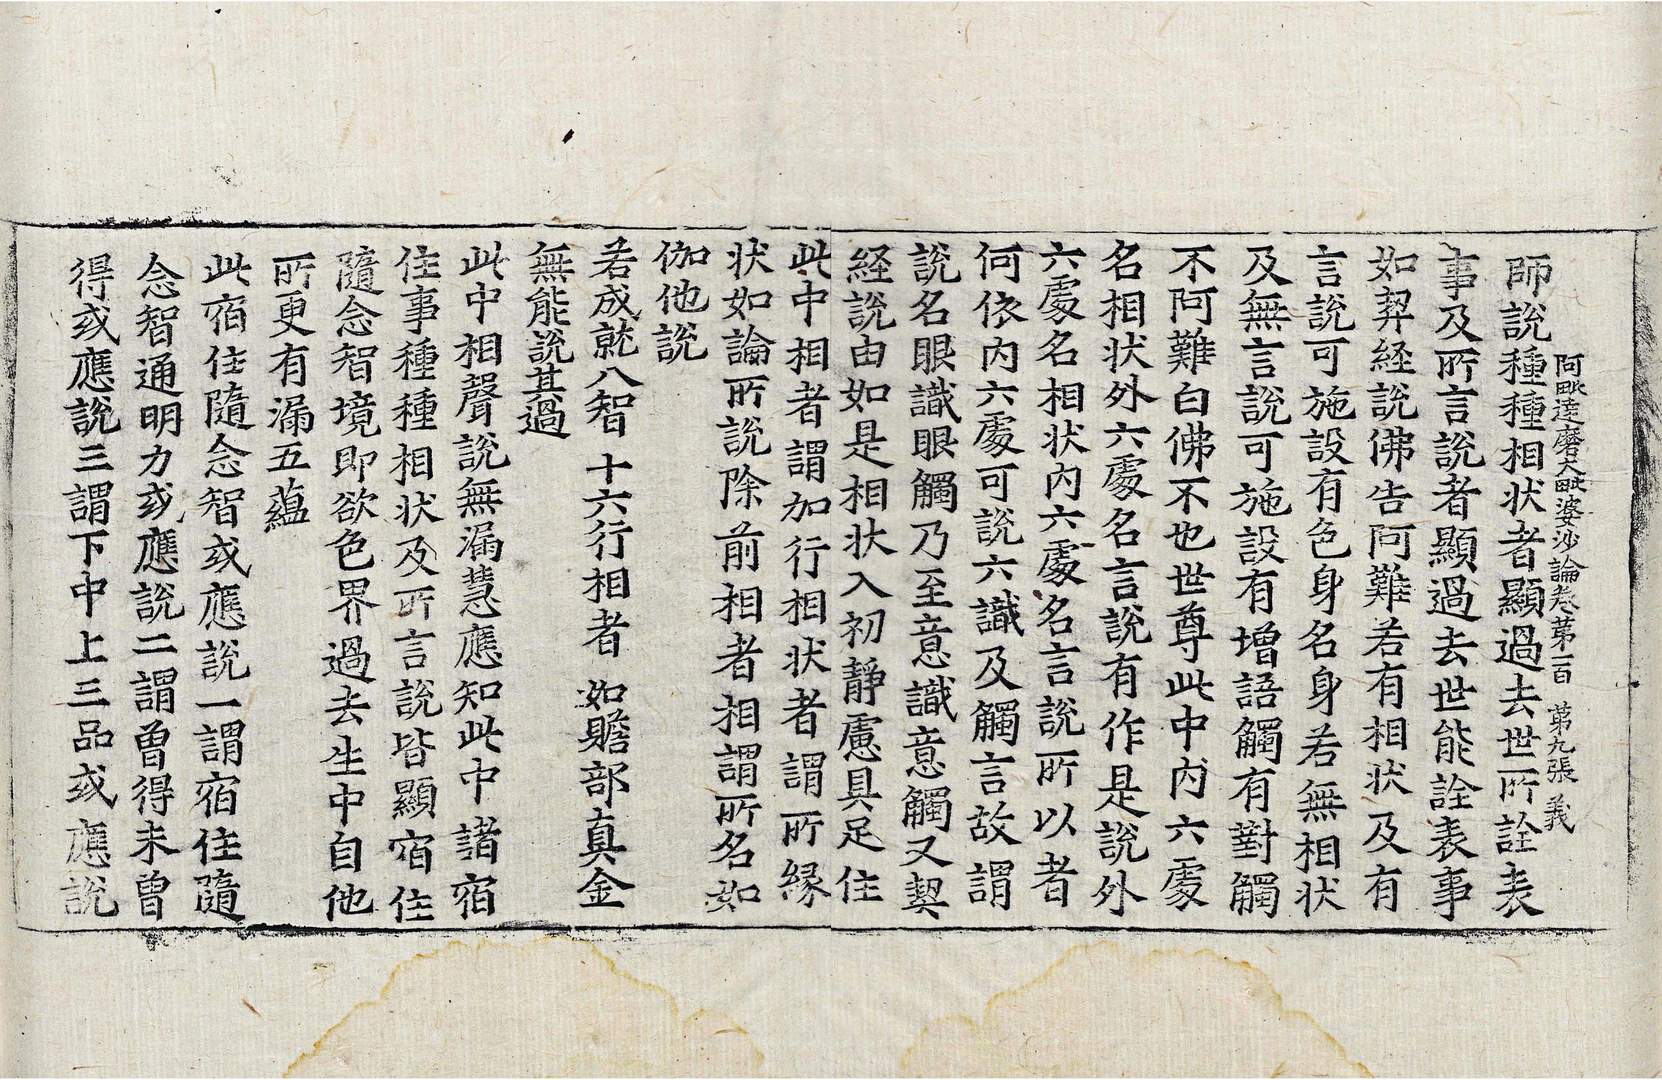 阿毗達磨大毗婆沙論卷苐一百　苐九張　義
師說種種相狀者顯過去世所詮表
事及所言說者顯過去世能詮表事
如契経說佛告阿難若有相狀及有
言說可施設有色身名身若無相狀
及無言說可施設有增語觸有對觸
不阿難白佛不也世尊此中內六處
名相狀外六處名言說有作是說外
六處名相狀內六處名言說所以者
何依內六處可說六識及觸言故謂
說名眼識眼觸乃至意識意觸又契
経說由如是相狀入初靜慮具足住
此中相者謂加行相狀者謂所縁
狀如論所說除前相者相謂所名如
伽他說
若成就八智　十六行相者　如贍部真金
無能說其過
此中相聲說無漏慧應知此中諸宿
住事種種相狀及所言說皆顯宿住
隨念智境即欲色界過去生中自他
所更有漏五蘊
此宿住隨念智或應說一謂宿住隨
念智通明力或應說二謂曾得未曾
得或應說三謂下中上三品或應說